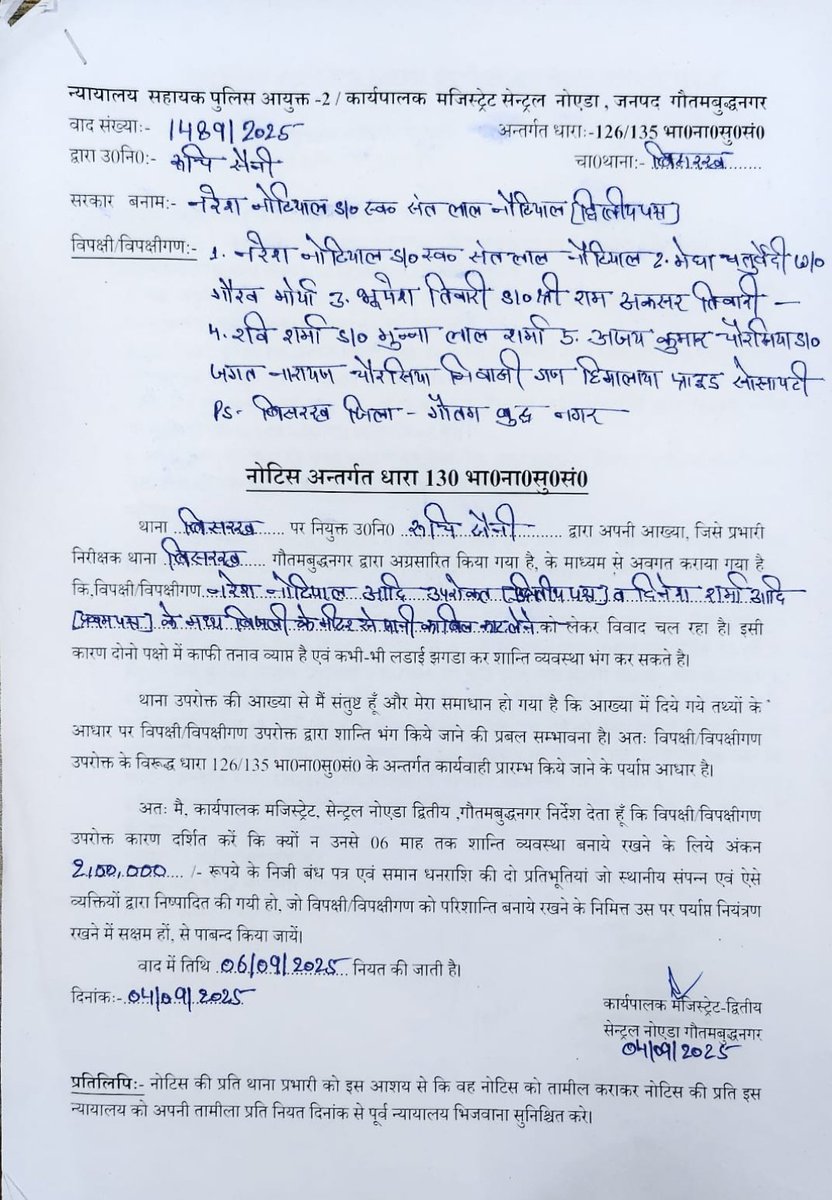 न्यायालय सहायक पुलिस आयुक्त -2 / कार्यपालक मजिस्ट्रेट सेन्ट्रल नोएडा, जनपद गौतमबुद्धनगर
वाद संख्या:- 1489/2025 अन्तर्गत धारा:-126/135 भा0ना0सु0सं0
द्वारा उ0नि0:- रूचि सैनी चा0थाना:- बिसरख
सरकार बनाम:- नरेश नोटियाल S/o स्व0 संत लाल नौटियाल [द्वितीय पक्ष]
विपक्षी/विपक्षीगण:- 1. नरेश नोटियाल S/o स्व0 संत लाल नौटियाल 2. मेघा चतुर्वेदी W/o
गौरव मोर्या 3. भूपेश तिवारी S/o श्री राम अकसर तिवारी -
4. रवि शर्मा S/o मुन्ना लाल शर्मा 5. अजय कुमार चौरसिया S/o
जगत नारायण चौरसिया निवासी गण हिमालाया प्राइड सोसायटी
PS- बिसरख जिला - गौतम बुद्ध नगर -
नोटिस अन्तर्गत धारा 130 भा0ना0सु0सं0
थाना बिसरख पर नियुक्त उ0नि0 रूचि सैनी द्वारा अपनी आख्या, जिसे प्रभारी
निरीक्षक थाना बिसरख गौतमबुद्धनगर द्वारा अग्रसारित किया गया है, के माध्यम से अवगत कराया गया है
कि विपक्षी/विपक्षीगण नरेश नोटियाल आदि उपरोक्त [द्वितीय पक्ष] व दिनेश शर्मा आदि
[प्रथम पक्ष] के मध्य बिजली के मीटर से पानी का बिल काट लेने को लेकर विवाद चल रहा है। इसी
कारण दोनो पक्षो में काफी तनाव व्याप्त है एवं कभी-भी लडाई झगडा कर शान्ति व्यवस्था भंग कर सकते है।
थाना उपरोक्त की आख्या से मैं संतुष्ट हूँ और मेरा समाधान हो गया है कि आख्या में दिये गये तथ्यों के
आधार पर विपक्षी/विपक्षीगण उपरोक्त द्वारा शान्ति भंग किये जाने की प्रबल सम्भावना है। अतः विपक्षी/विपक्षीगण
उपरोक्त के विरूद्ध धारा 126/135 भा0ना0सु0सं0 के अन्तर्गत कार्यवाही प्रारम्भ किये जाने के पर्याप्त आधार है।
अतः मै, कार्यपालक मजिस्ट्रेट, सेन्ट्रल नोएडा द्वितीय ,गौतमबुद्धनगर निर्देश देता हूँ कि विपक्षी/विपक्षीगण
उपरोक्त कारण दर्शित करें कि क्यों न उनसे 06 माह तक शान्ति व्यवस्था बनाये रखने के लिये अंकन
2,100,000 /- रूपये के निजी बंध पत्र एवं समान धनराशि की दो प्रतिभूतियां जो स्थानीय संपन्न एवं ऐसे
व्यक्तियों द्वारा निष्पादित की गयी हो, जो विपक्षी/विपक्षीगण को परिशान्ति बनाये रखने के निमित्त उस पर पर्याप्त नियंत्रण
रखने में सक्षम हों, से पाबन्द किया जायें।
वाद में तिथि 06/09/2025 नियत की जाती है।
दिनांक:- 04/09/2025
कार्यपालक मजिस्ट्रेट-द्वितीय
सेन्ट्रल नोएडा गौतमबुद्धनगर
04/09/2025
प्रतिलिपि:- नोटिस की प्रति थाना प्रभारी को इस आशय से कि वह नोटिस को तामील कराकर नोटिस की प्रति इस
न्यायालय को अपनी तामीला प्रति नियत दिनांक से पूर्व न्यायालय भिजवाना सुनिश्चित करे।